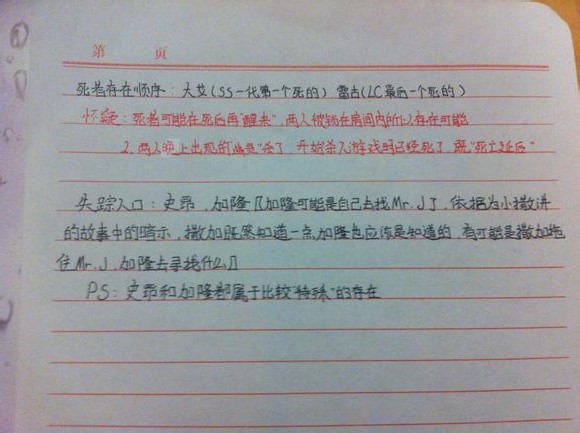 第 页
死者存在顺序：大艾（SS一代第一个死的）雷古（LC最后一个死的）
怀疑：死者可能在死后再"醒来"，两人被锁在房间内所以存在可能
2.两人晚上出现的 了，开始杀人游戏时已经死了，需"死亡延后"
失踪人口：史昂，加隆〖加隆可能是自己去找Mr.J了，依据为小撒讲
的故事中的暗示，撒加既然知道一点加隆也应该是知道的，有可能是撒加拖
住Mr.J，加隆去寻找什么〗
PS：史昂和加隆都属于比较"特殊"的存在